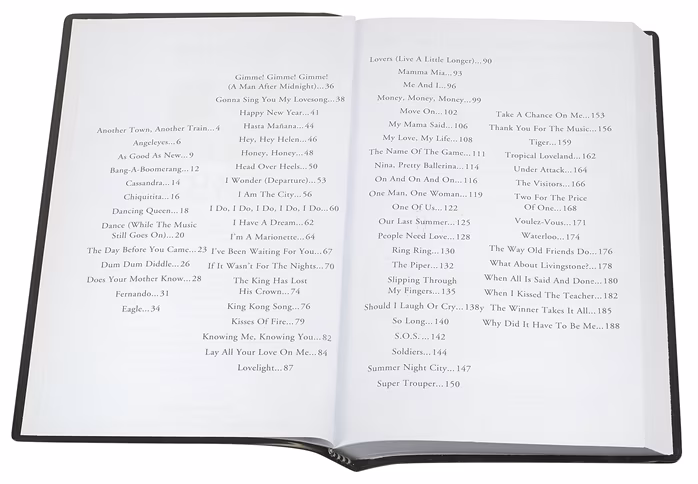 Another Town, Another Train...4
Angeleyes...6
As Good As New...9
Bang-A-Boomerang...12
Cassandra...14
Chiquitita...16
Dancing Queen...18
Dance (While The Music
Still Goes On)...20
The Day Before You Came...23
Dum Dum Diddle...26
Does Your Mother Know...28
Fernando...31
Eagle...34
Gimme! Gimme! Gimme!
(A Man After Midnight)...36
Gonna Sing You My Lovesong...38
Happy New Year...41
Hasta Mañana...44
Hey, Hey Helen...46
Honey, Honey...48
Head Over Heels...50
I Wonder (Departure)...53
I Am The City...56
I Do, I Do, I Do, I Do, I Do...60
I Have A Dream...62
I'm A Marionette...64
I've Been Waiting For You...67
If It Wasn't For The Nights...70
The King Has Lost
His Crown...74
King Kong Song...76
Kisses Of Fire...79
Knowing Me, Knowing You...82
Lay All Your Love On Me...84
Lovelight...87
Lovers (Live A Little Longer)...90
Mamma Mia...93
Me And I...96
Money, Money, Money...99
Move On...102
My Mama Said...106
My Love, My Life...108
The Name Of The Game...111
Nina, Pretty Ballerina...114
On And On And On...116
One Man, One Woman...119
One Of Us...122
Our Last Summer...125
People Need Love...128
Ring Ring...130
The Piper...132
Slipping Through
My Fingers...135
Should I Laugh Or Cry...138y
So Long...140
S.O.S. ...142
Soldiers...144
Summer Night City...147
Super Trouper...150
Take A Chance On Me...153
Thank You For The Music...156
Tiger...159
Tropical Loveland...162
Under Attack...164
The Visitors...166
Two For The Price
Of One...168
Voulez-Vous...171
Waterloo...174
The Way Old Friends Do...176
What About Livingstone?...178
When All Is Said And Done...180
When I Kissed The Teacher...182
The Winner Takes It All...185
Why Did It Have To Be Me...188